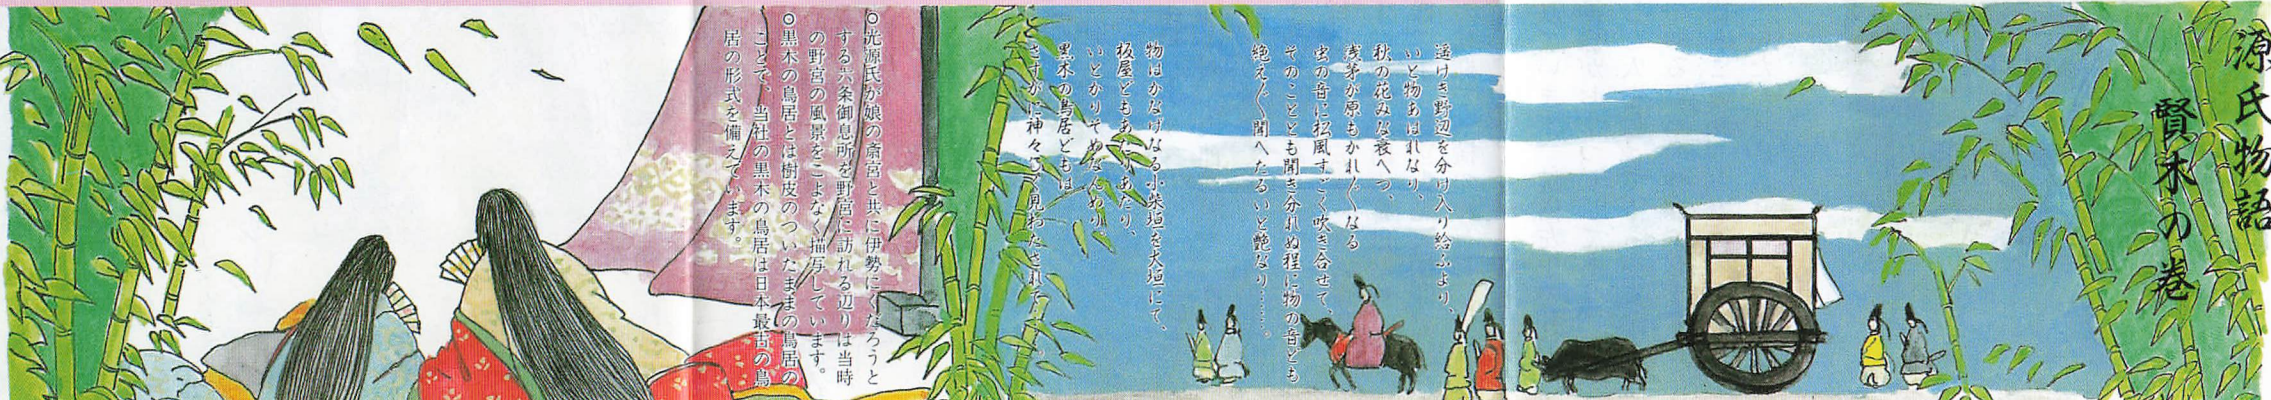 源氏物語
賢木の巻
遥けき野辺を分け入り給ふより、
いと物あはれなり、
秋の花みな衰へつ、
浅茅が原もかれ〲なる
虫の音に松風すごく吹き合せて、
そのことゝも聞き分れぬ程に物の音ども
絶え〲聞へたるいと艶なり……。
物はかなげなる小柴垣を大垣にて、
板屋どもあたりあたり、
いとかりそめなんめり
黒木の鳥居どもは
さすがに神々しく見わたされて、
◎光源氏が娘の斎宮と共に伊勢にくだろうと
する六条御息所を野宮に訪れる辺りは当時
の野宮の風景をこよなく描写しています。
◎黒木の鳥居とは樹皮のついたままの鳥居の
ことで、当社の黒木の鳥居は日本最古の鳥
居の形式を備えています。